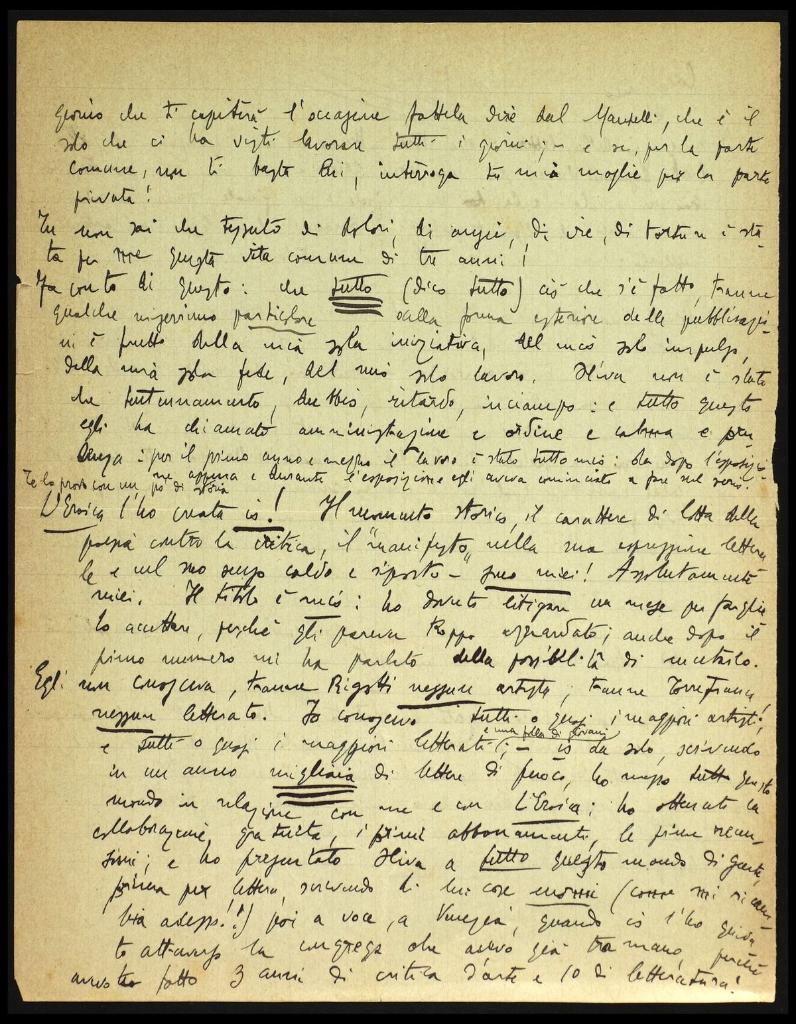 giorno che ti capiterà l'occasione fattela dire dal Mantelli, che è il
solo che ci ha visti lavorare tutti i giorni; - e se, per la parte
comune, non ti basta lui, interroga tu mia moglie per la parte
privata!
Tu non sai che tessuto di dolori, di angosce, di ire, di torture è sta-
ta per me questa vita comune di tre anni!
Fa conto di questo: che tutto (dico tutto) ciò che s'è fatto, tranne
qualche magrissimo particolare della forma esteriore delle pubblicazio-
ni è frutto della mia sola iniziativa, del mio solo impulso,
della mia sola fede, del mio solo lavoro. Oliva non è stato
che tentennamento, dubbio, ritardo, inciampo: e tutto questo
egli ha chiamato amministrazione e ordine e calma e pru
denza: per il primo anno e mezzo il lavoro è stato tutto mio: da dopo l'esposizi-
ne appena e durante l'esposizione egli aveva cominciato a fare sul serio.
Te lo provo con un po' di storia
L'Eroica l'ho creata io! Il momento storico, il carattere di lotta della
poesia contro la critica, il "manifesto" nella sua espressione lettera
le e nel suo senso caldo e riposto - sono miei! Assolutamente
miei. Il titolo è mio: ho dovuto litigare un mese per farglie
lo accettare, perché gli pareva troppo azzardato; anche dopo il
primo numero mi ha parlato della possibilità di mutarlo.
Egli non conosceva, tranne Rigotti nessun artista; tranne Torrefranca
nessun letterato. Io conoscevo tutti o quasi i maggiori artisti,
e tutti o quasi i maggiori letterati e una folla di giovani; - io da solo, scrivendo
in un anno migliaia di lettere di fuoco, ho messo tutto questo
mondo in relazione con me e con L'Eroica; ho ottenuto la
collaborazione gratuita, i primi abbonamenti, le prime recen-
sioni; e ho presentato Oliva a tutto questo mondo di gente,
prima per lettera, scrivendo di lui cose enormi (come mi ricam-
bia adesso!!) poi a voce, a Venezia, quando io l'ho guida
to attraverso la congrega che avevo già tra mano, perché
avevo fatto 3 anni di critica d'arte e 10 di letteratura!